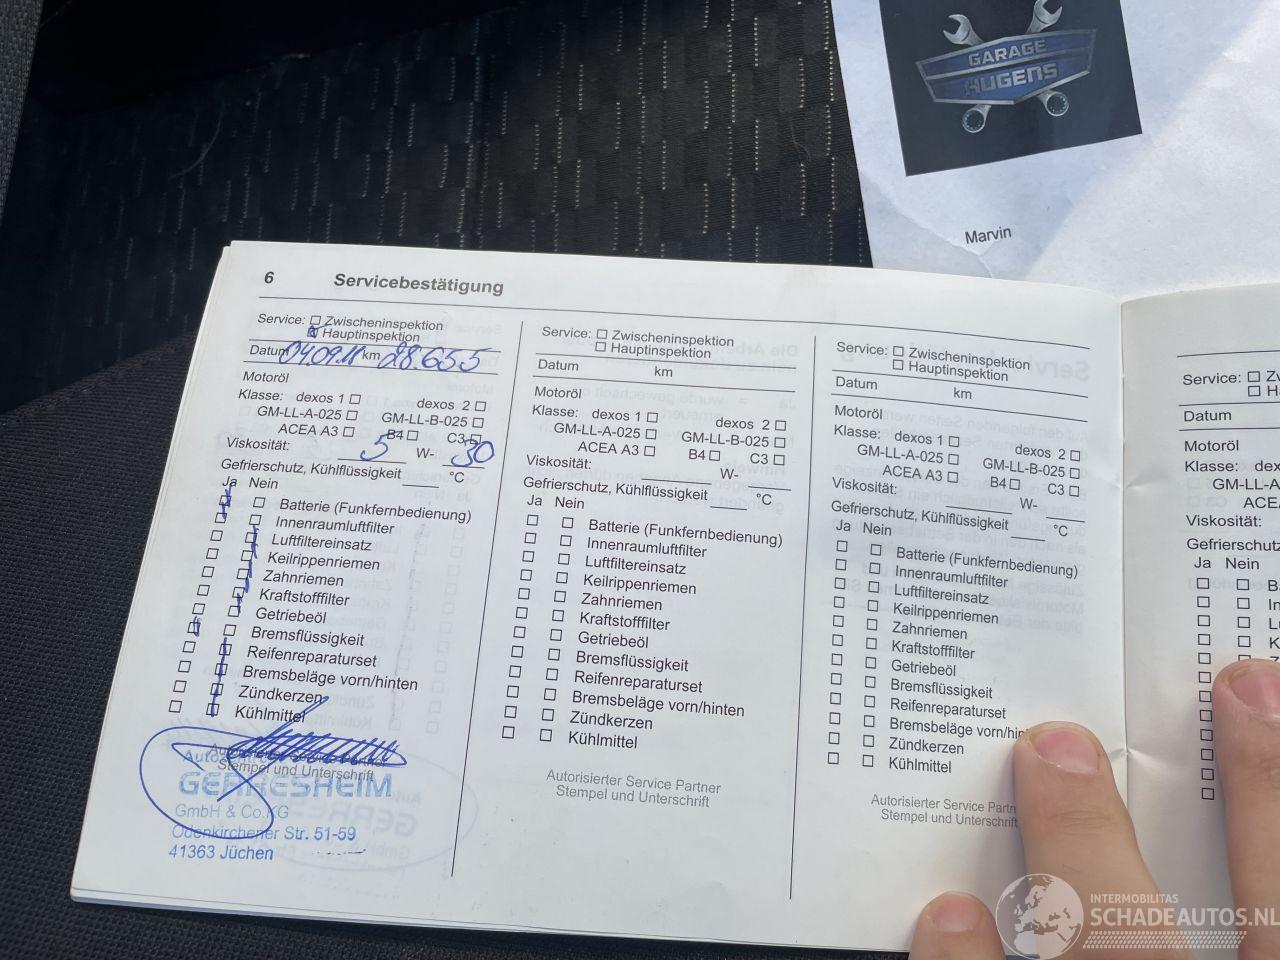 GARAGE
HUGENS
Marvin
6 Servicebestätigung
Service: Zwischeninspektion
Hauptinspektion
Datum 04.09.11 km 28.655
Motoröl
Klasse: dexos 1 dexos 2
GM-LL-A-025 GM-LL-B-025
ACEA A3 B4 C3
Viskosität: 5 W- 30
Gefrierschutz, Kühlflüssigkeit °C
Ja Nein
Batterie (Funkfernbedienung)
Innenraumluftfilter
Luftfiltereinsatz
Keilrippenriemen
Zahnriemen
Kraftstofffilter
Getriebeöl
Bremsflüssigkeit
Reifenreparaturset
Bremsbeläge vorn/hinten
Zündkerzen
Kühlmittel
Autorisierter Service Partner
Stempel und Unterschrift
GERRESHEIM
GmbH & Co.KG
Odenkirchener Str. 51-59
41363 Jüchen
Service: Zwischeninspektion
Hauptinspektion
Datum km
Motoröl
Klasse: dexos 1 dexos 2
GM-LL-A-025 GM-LL-B-025
ACEA A3 B4 C3
Viskosität: W-
Gefrierschutz, Kühlflüssigkeit °C
Ja Nein
Batterie (Funkfernbedienung)
Innenraumluftfilter
Luftfiltereinsatz
Keilrippenriemen
Zahnriemen
Kraftstofffilter
Getriebeöl
Bremsflüssigkeit
Reifenreparaturset
Bremsbeläge vorn/hinten
Zündkerzen
Kühlmittel
Autorisierter Service Partner
Stempel und Unterschrift
Service: Zwischeninspektion
Hauptinspektion
Datum km
Motoröl
Klasse: dexos 1 dexos 2
GM-LL-A-025 GM-LL-B-025
ACEA A3 B4 C3
Viskosität: W-
Gefrierschutz, Kühlflüssigkeit °C
Ja Nein
Batterie (Funkfernbedienung)
Innenraumluftfilter
Luftfiltereinsatz
Keilrippenriemen
Zahnriemen
Kraftstofffilter
Getriebeöl
Bremsflüssigkeit
Reifenreparaturset
Bremsbeläge vorn/hin
Zündkerzen
Kühlmittel
Autorisierter Service Partn
Stempel und Unterschrift
Service: Zw
Ha
Datum
Motoröl
Klasse: de
GM-LL-A
ACE
Viskosität:
Gefrierschutz
Ja Nein
Ba
In
L
K
INTERMOBILITAS
SCHADEAUTOS.NL